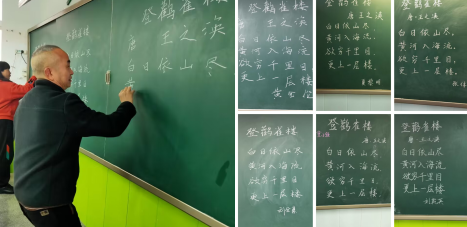 登鹳雀楼
唐 王之涣
白日依山尽
黄
登鹳雀楼
白日依山尽
登鹳雀楼
唐 王之涣
白日依山尽
黄河入海流
欲穷千里目
更上一层楼
登鹳雀楼
唐 王之涣
白日依山尽,
黄河入海流。
欲穷千里目,
更上一层楼。
登鹳雀楼
唐·王之涣
白日依山尽,
黄河入海流。
欲穷千里目,
更上一层楼。
登鹳雀楼
白日依山尽
黄河入海流
欲穷千里目
更上一层楼
登鹳雀楼
唐 王之涣
白日依山尽
黄河入海流
欲穷千里目
更上一层楼
登鹳雀楼
唐·王之涣
白日依山尽
黄河入海流
欲穷千里目
更上一层楼